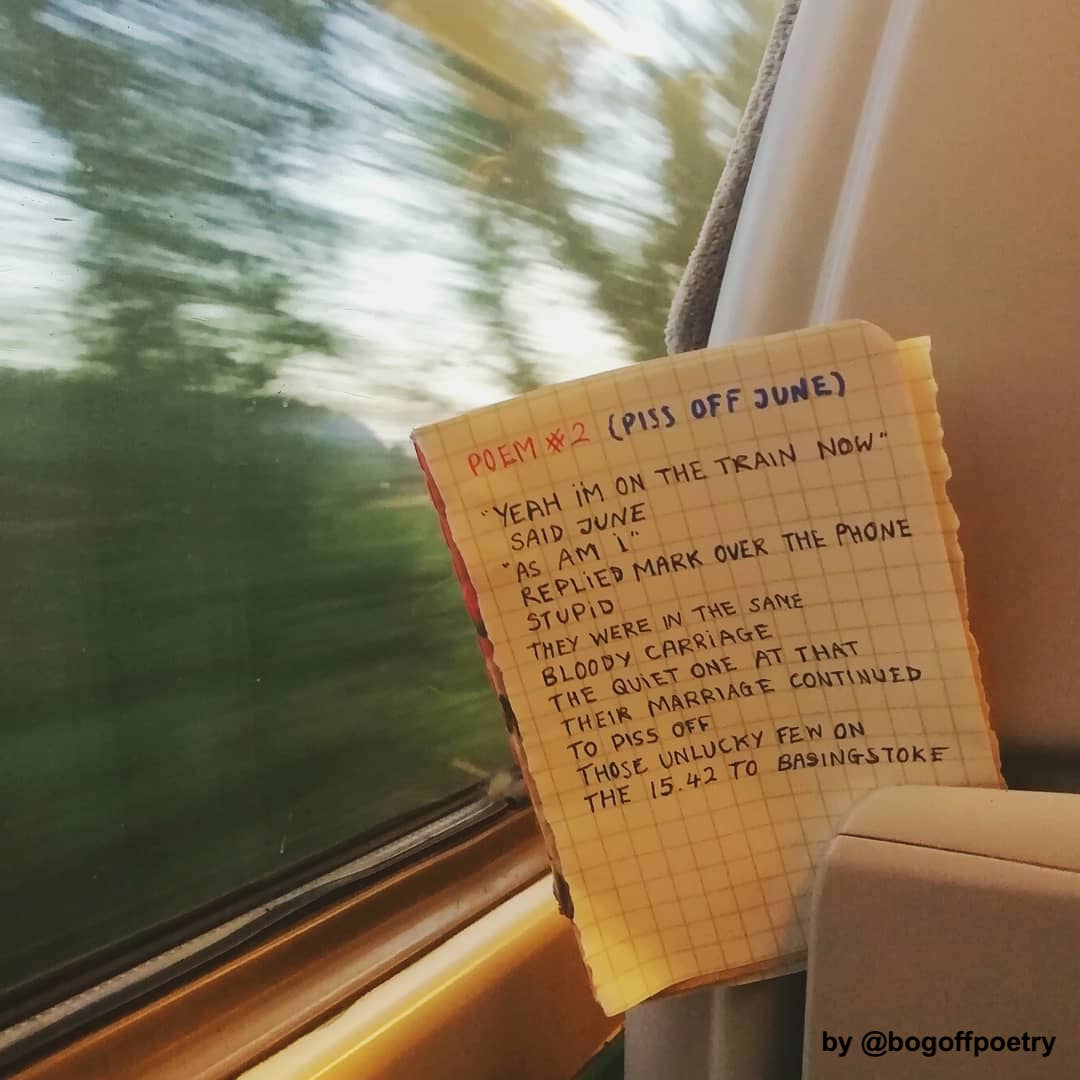 POEM #2 (PISS OFF JUNE)
"YEAH I'M ON THE TRAIN NOW"
SAID JUNE
"AS AM I"
REPLIED MARK OVER THE PHONE
STUPID
THEY WERE IN THE SAME
BLOODY CARRIAGE
THE QUIET ONE AT THAT
THEIR MARRIAGE CONTINUED
TO PISS OFF
THOSE UNLUCKY FEW ON
THE 15.42 TO BASINGSTOKE
by @bogoffpoetry